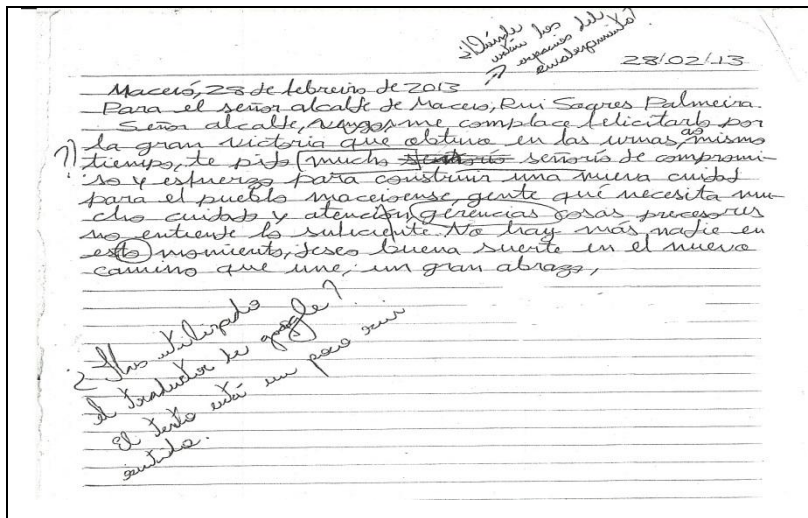 ¿Dónde
están los
espacios del
encabezamiento?
28/02/13
Maceió, 28 de febreiro de 2013
Para el señor alcalde de Maceio, Rui Soares Palmeira.
Señor alcalde, me complace felicitarlo por
la gran victoria que obtuvo en las urnas, ao mismo
tiempo, te pido mucho señorio de compromi-
so y esfuerzo para construir una nueva cuidad
para el pueblo maceioense, gente qué necesita mu-
cho cuidado y atención, gerencias osas
no entiende lo suficiente. No hay más nadie en
esto momiento, deseo buena suerte en el nuevo
camino que une, un gran abrazo,
?
¿Has utilizado
el traductor de google?
El texto está un poco sin
sentido.